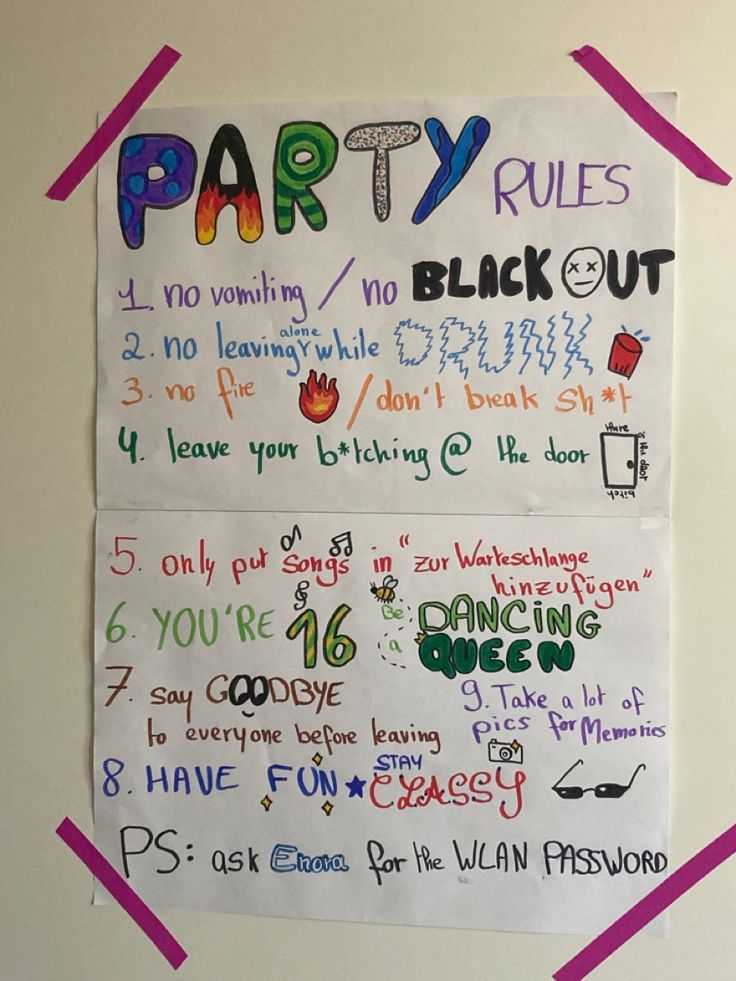 PARTY RULES
1. no vomiting / no BLACK OUT
2. no leaving alone while DRUNK
3. no fire / don't break sh*t
4. leave your b*tching @ the door
there
is the door
bitch
5. only put songs in "zur Warteschlange
hinzufügen"
6. YOU'RE 16 Be a DANCING
QUEEN
7. say GOODBYE
to everyone before leaving
9. Take a lot of
pics for Memories
8. HAVE FUN ★ STAY CLASSY
PS: ask Enora for the WLAN PASSWORD